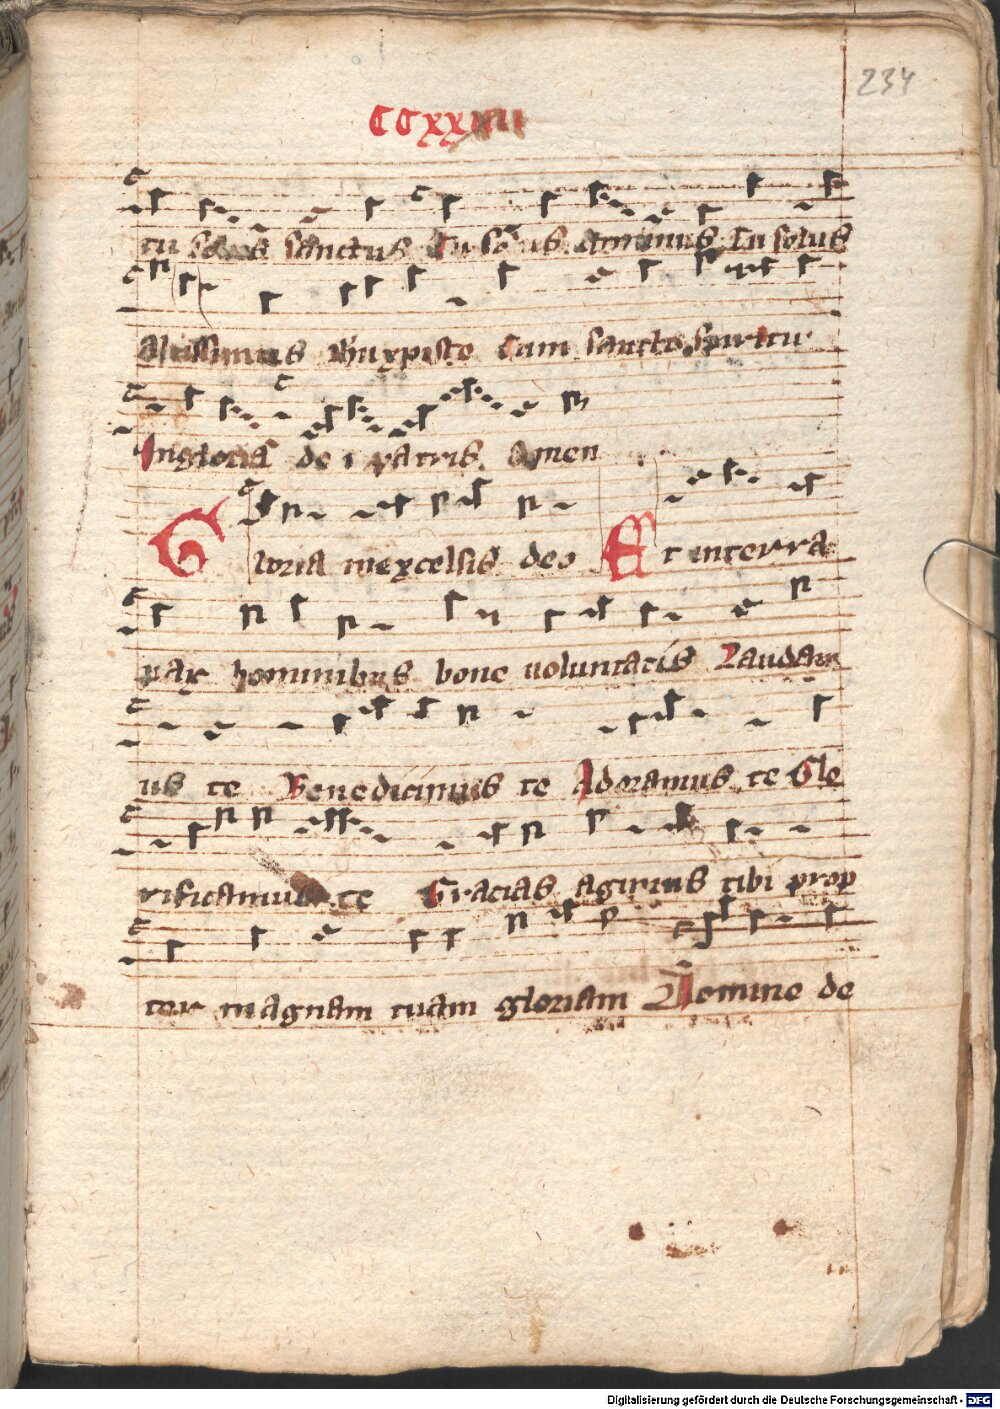 234
CCxxiiii
tu solus sanctus Tu solus dominus Tu solus
Altissimus ihu xpiste Cum sancto spiritu
In gloria dei patris Amen
Gloria in excelsis deo Et in terra
pax hominibus bone voluntatis Laudam
us te Benedicimus te Adoramus te Glo
rificamus te Gracias agimus tibi prop
ter magnam tuam gloriam Domine de
Digitalisierung gefördert durch die Deutsche Forschungsgemeinschaft - DFG